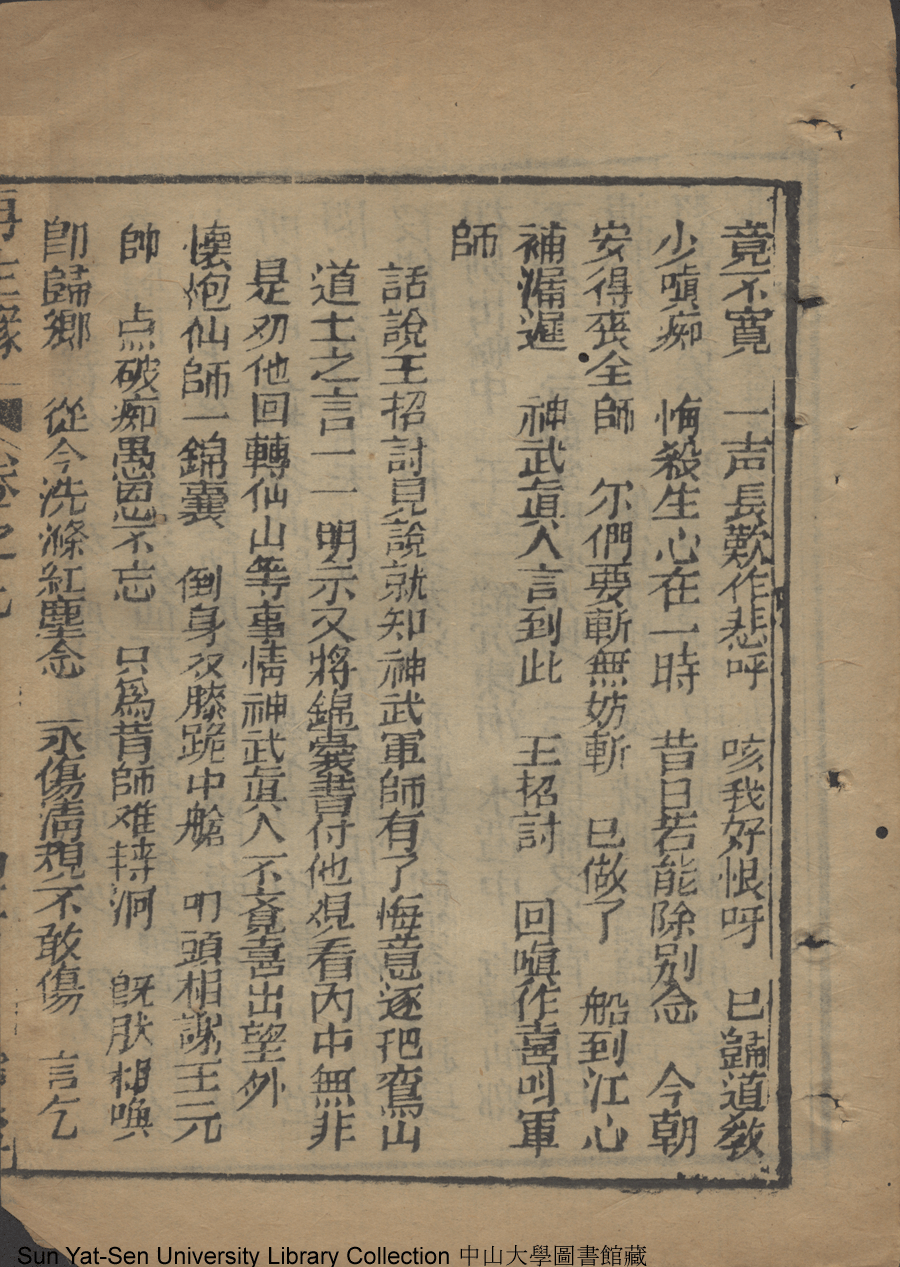 竟不寬　一声長歎作悲呼　咳我好恨呀　已歸道教
少嗔痴　悔殺生心在一時　昔日若能除别念　今朝
安得喪全師　尔們要斬無妨斬　已做了　船到江心
補漏遲　神武眞人言到此　王招討　回嗔作喜叫軍
師
話說王招討見說就知神武軍師有了悔意逐把鸞山
道士之言一一明示又將錦囊書付他观看內中無非
是劝他回轉仙山等事情神武眞人不竟喜出望外
懷抱仙師一錦囊　倒身双膝跪中艙　叩頭相謝王元
帥　点破痴愚恩不忘　只爲昔師难轉洞　旣肰相喚
卽歸鄉　從今洗滌紅塵念　永傷清規不敢傷　言乞
再生緣　卷之九
Sun Yat-Sen University Library Collection 中山大學圖書館藏